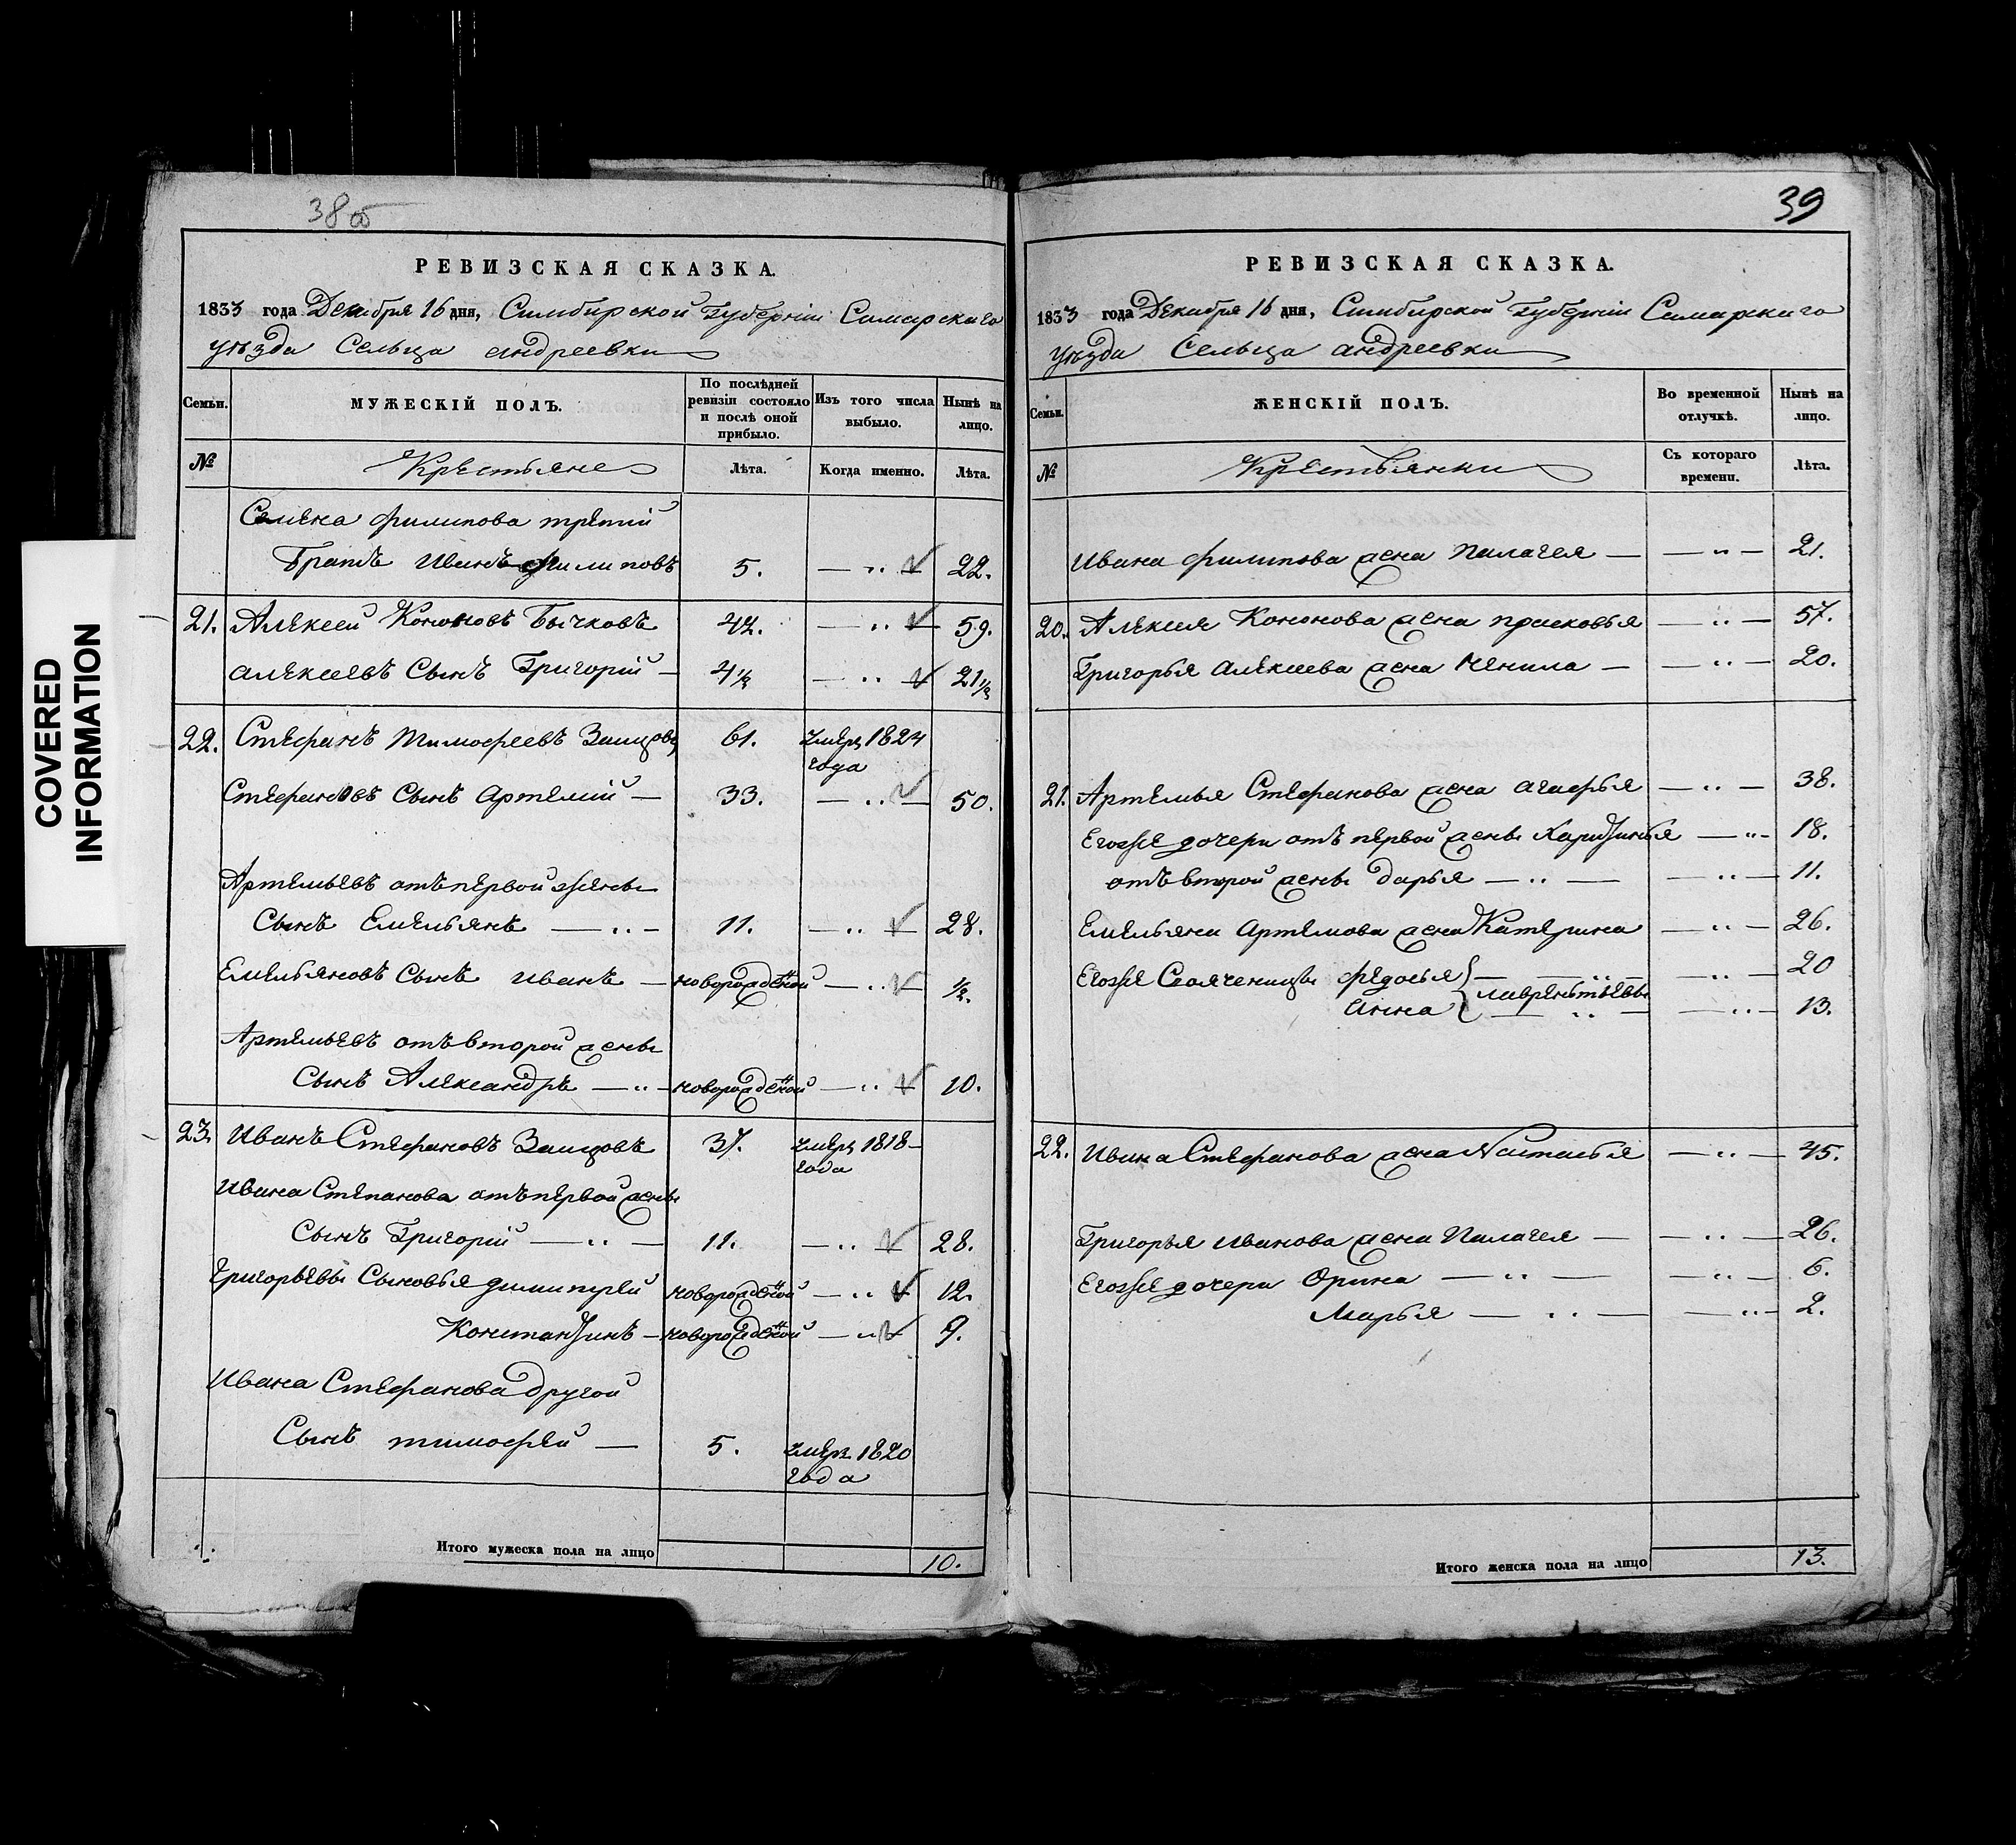 38об
РЕВИЗСКАЯ СКАЗКА.
1833 года Декабря 16 дня, Симбирской Губерніи Самарскаго
уѣзда Сельца андреевки
Семьи.
МУЖЕСКІЙ ПОЛЪ.
По послѣдней ревизіи состояло и послѣ оной прибыло.
Изъ того числа выбыло.
Нынѣ на лицо.
№
Крестьяне
Лѣта.
Когда именно.
Лѣта.
Семена филипова третий
Братъ Иванъ филиповъ 5. — " — 22.
21. Алексей Кононовъ Бычковъ 42. — " — 59.
алексеевъ Сынъ Григорій — 4½ — " — 21½
22. Стефанъ тимофеевъ Заицовъ 61. умер 1824
года
Стефановъ Сынъ Артемий — 33. — " — 50.
Артемьевъ отъ первой жены
Сынъ Емельянъ — " — 11. — " — 28.
Емельяновъ Сынъ иванъ — новорожденой — " — ½.
Артемьевъ отъ второй жены
Сынъ Александръ — " — новорожденой — " — 10.
23. Иванъ Стефановъ Заицовъ 37. умер 1818
года
Ивана Степанова отъ первой жены
Сынъ Григорій — " — 11. — " — 28.
Григорьевы Сыновья димитрей новорожденой — " — 12.
Константинъ — новорожденой — " — 9.
Ивана Стефанова другой
Сынъ тимофей — 5. умер 1820
года
Итого мужеска пола на лицо 10.
39
РЕВИЗСКАЯ СКАЗКА.
1833 года Декабря 16 дня, Симбирской Губерніи Самарскаго
уѣзда Сельца андреевки
Семьи.
ЖЕНСКІЙ ПОЛЪ.
Во временной отлучкѣ.
Нынѣ на лицо.
№
Крестьянки
Съ котораго времени.
Лѣта.
Ивана филипова жена Палагея — — " — 21.
20. Алексея Кононова жена прасковья — " — 57.
Григорья Алексеева жена Ненила — — " — 20.
21. Артемья Стефанова жена агафья — " — 38.
Егоже дочери отъ первой жены Харитинья — " — 18.
отъ второй жены дарья — " — — " — 11.
Емельяна Артемова жена Катерина — " — 26.
Егоже Свояченицы федосья — " — — " — 20
лаврентьевы
Анна — " — — " — 13.
22. Ивана Стефанова жена Настасья — " — 45.
Григорья иванова жена Палагея — — " — 26.
Егоже дочери Орина — " — — " — 6.
Марья — " — — " — 2.
Итого женска пола на лицо 13.
COVERED
INFORMATION